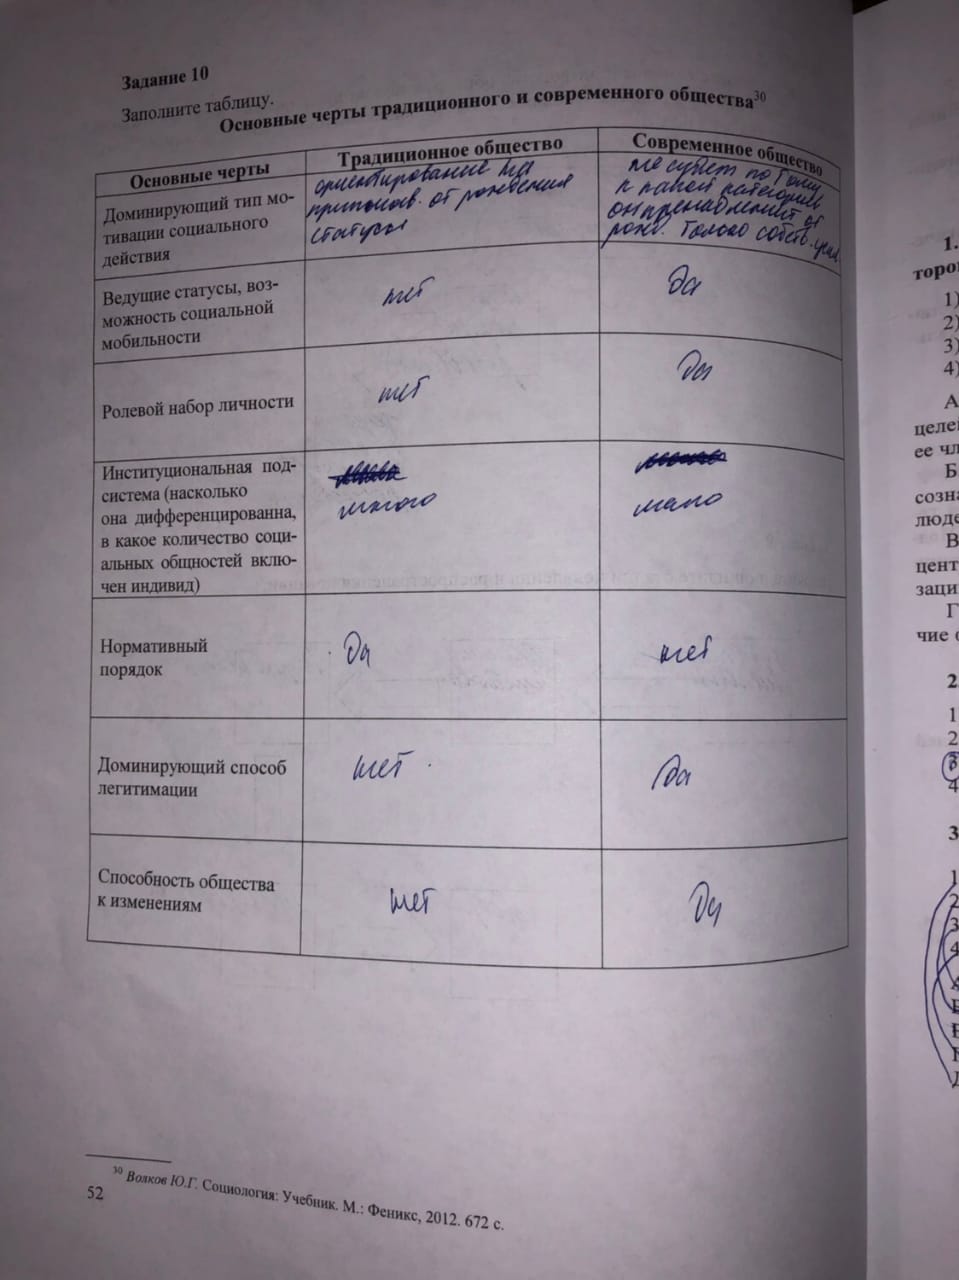 Задание 10
Заполните таблицу.
Основные черты традиционного и современного общества30
Основные черты
Традиционное общество
Современное общество
Доминирующий тип мо-
тивации социального
действия
ориентирование на
от рождения
статусы
не судят по тому
к какой категории
он принадлежит от
рожд. Только собств.
Ведущие статусы, воз-
можность социальной
мобильности
нет
Да
Ролевой набор личности
нет
Да
Институциональная под-
система (насколько
она дифференцированна,
в какое количество соци-
альных общностей вклю-
чен индивид)
много
мало
Нормативный
порядок
Да
нет
Доминирующий способ
легитимации
нет
Да
Способность общества
к изменениям
нет
Да
30 Волков Ю.Г. Социология: Учебник. М.: Феникс, 2012. 672 с.
52
1.
торо
1)
2)
3)
4)
А
целе
ее чл
Б
созна
люде
В
цент
заци
Г
чие о
2
1
2
3
4
3
1
2
3
4